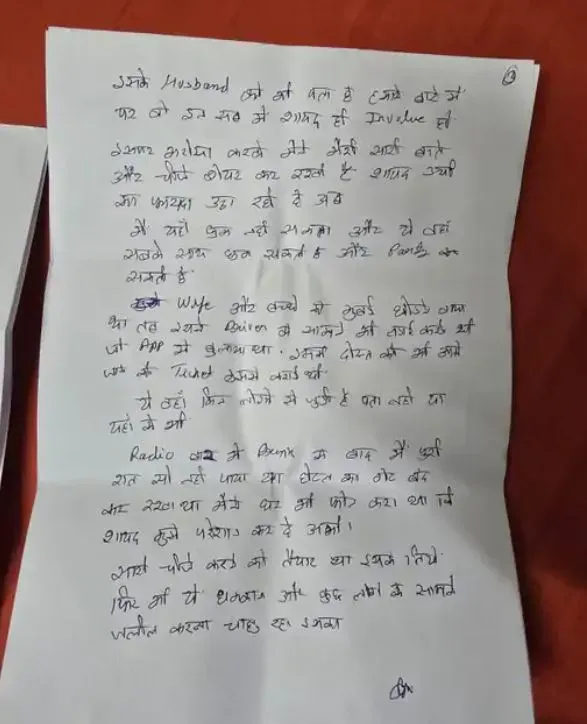 ③
इसके Husband को भी पता है हमारे बारे में
पर वो इन सब में शायद ही Involve हो
इसपर भरोसा करके मैंने मेरी सारी बातें
और चीजें शेयर कर रखी है शायद उसी
का फायदा उठा रही है अब
मैं यहाँ रुक नहीं सकता और ये वहाँ
सबके साथ रुक सकती है और Party कर
सकती है
Wife और बच्चे को मुंबई छोड़ने गया
था तब इसने के सामने भी कही थी
जो App से बुलाया था। इसके दोस्त की भी आने
की Ticket इसने कराई थी
ये वहाँ किन लोगों से जुड़ी है पता नहीं या
यहाँ से भी
Radio बार में Drink के बाद मैं पूरी
रात सो नहीं पाया था होटल का गेट बंद
कर रखा था मैंने घर भी फोन करा था कि
शायद मुझे परेशान कर दे अभी।
सारी चीजें करने को तैयार था इसके लिये
फिर भी ये धमकाना और कुछ लोगों के सामने
जलील करना चाह रहा इसका